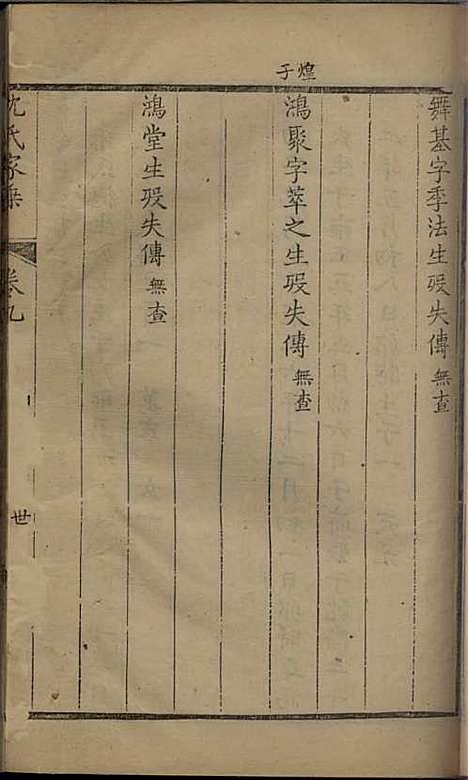 舞基字季法生歿失傳無查
煌子
鴻聚字萃之生歿失傳無查
鴻堂生歿失傳無查
沈氏家乘
卷九
世